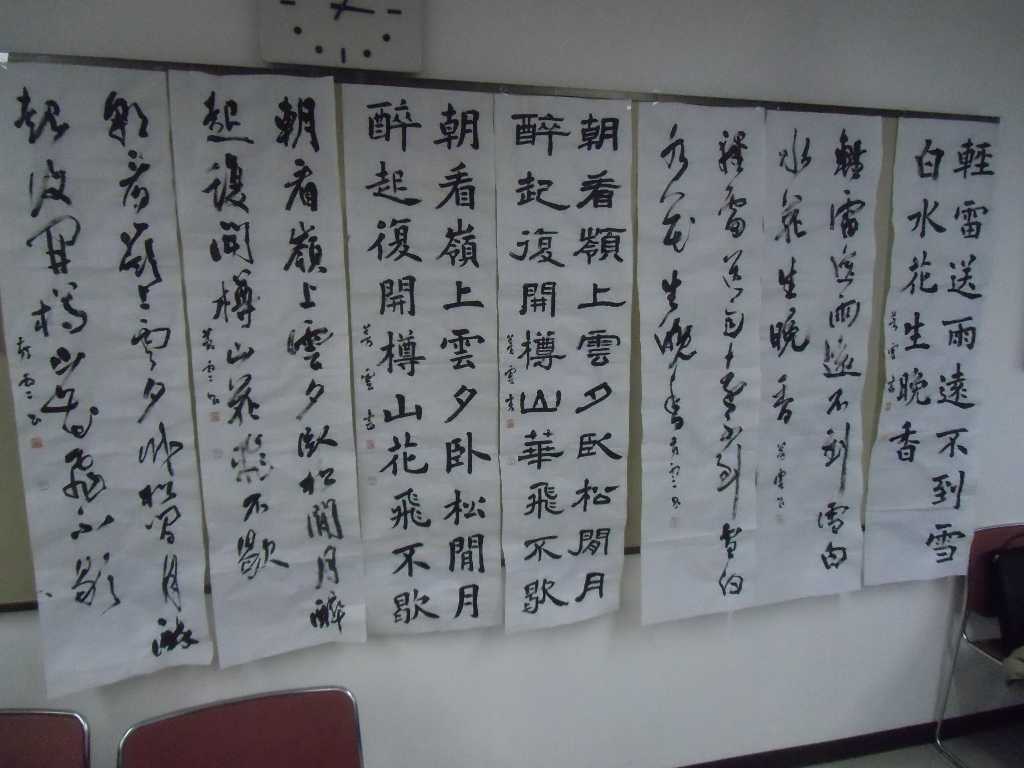 輕雷送雨遠不到雪
白水花生晚香
輕雷送雨遠不到雪白
水花生晚香
輕雷送雨遠不到雪白
水花生晚香
朝看嶺上雲夕臥松閒月
醉起復開樽山華飛不歇
朝看嶺上雲夕卧松閒月
醉起復開樽山花飛不歇
朝看嶺上雲夕臥松閒月醉
起復開樽山花飛不歇
朝看嶺上雲夕臥松閒月醉
起復開樽山花飛不歇